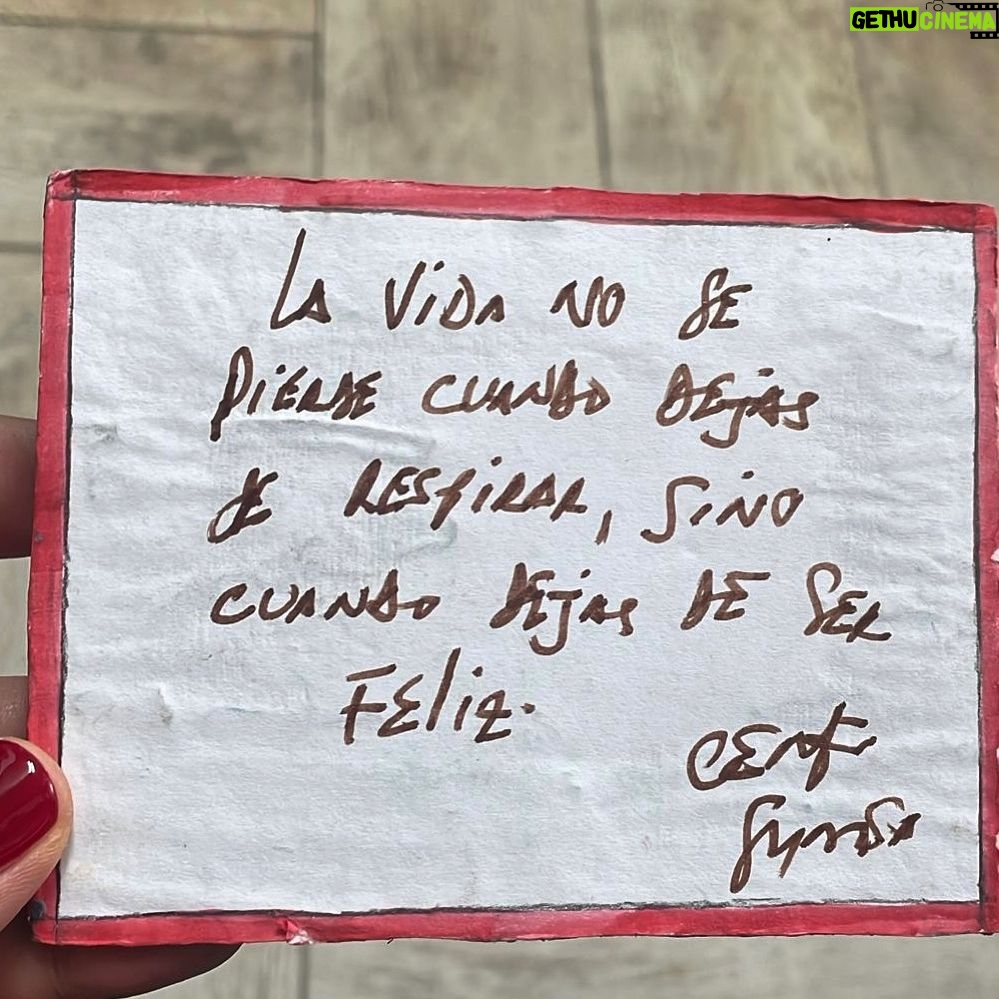 GETHUCINEMA
LA VIDA NO SE
PIERDE CUANDO DEJAS
DE RESPIRAR, SINO
CUANDO DEJAS DE SER
FELIZ.